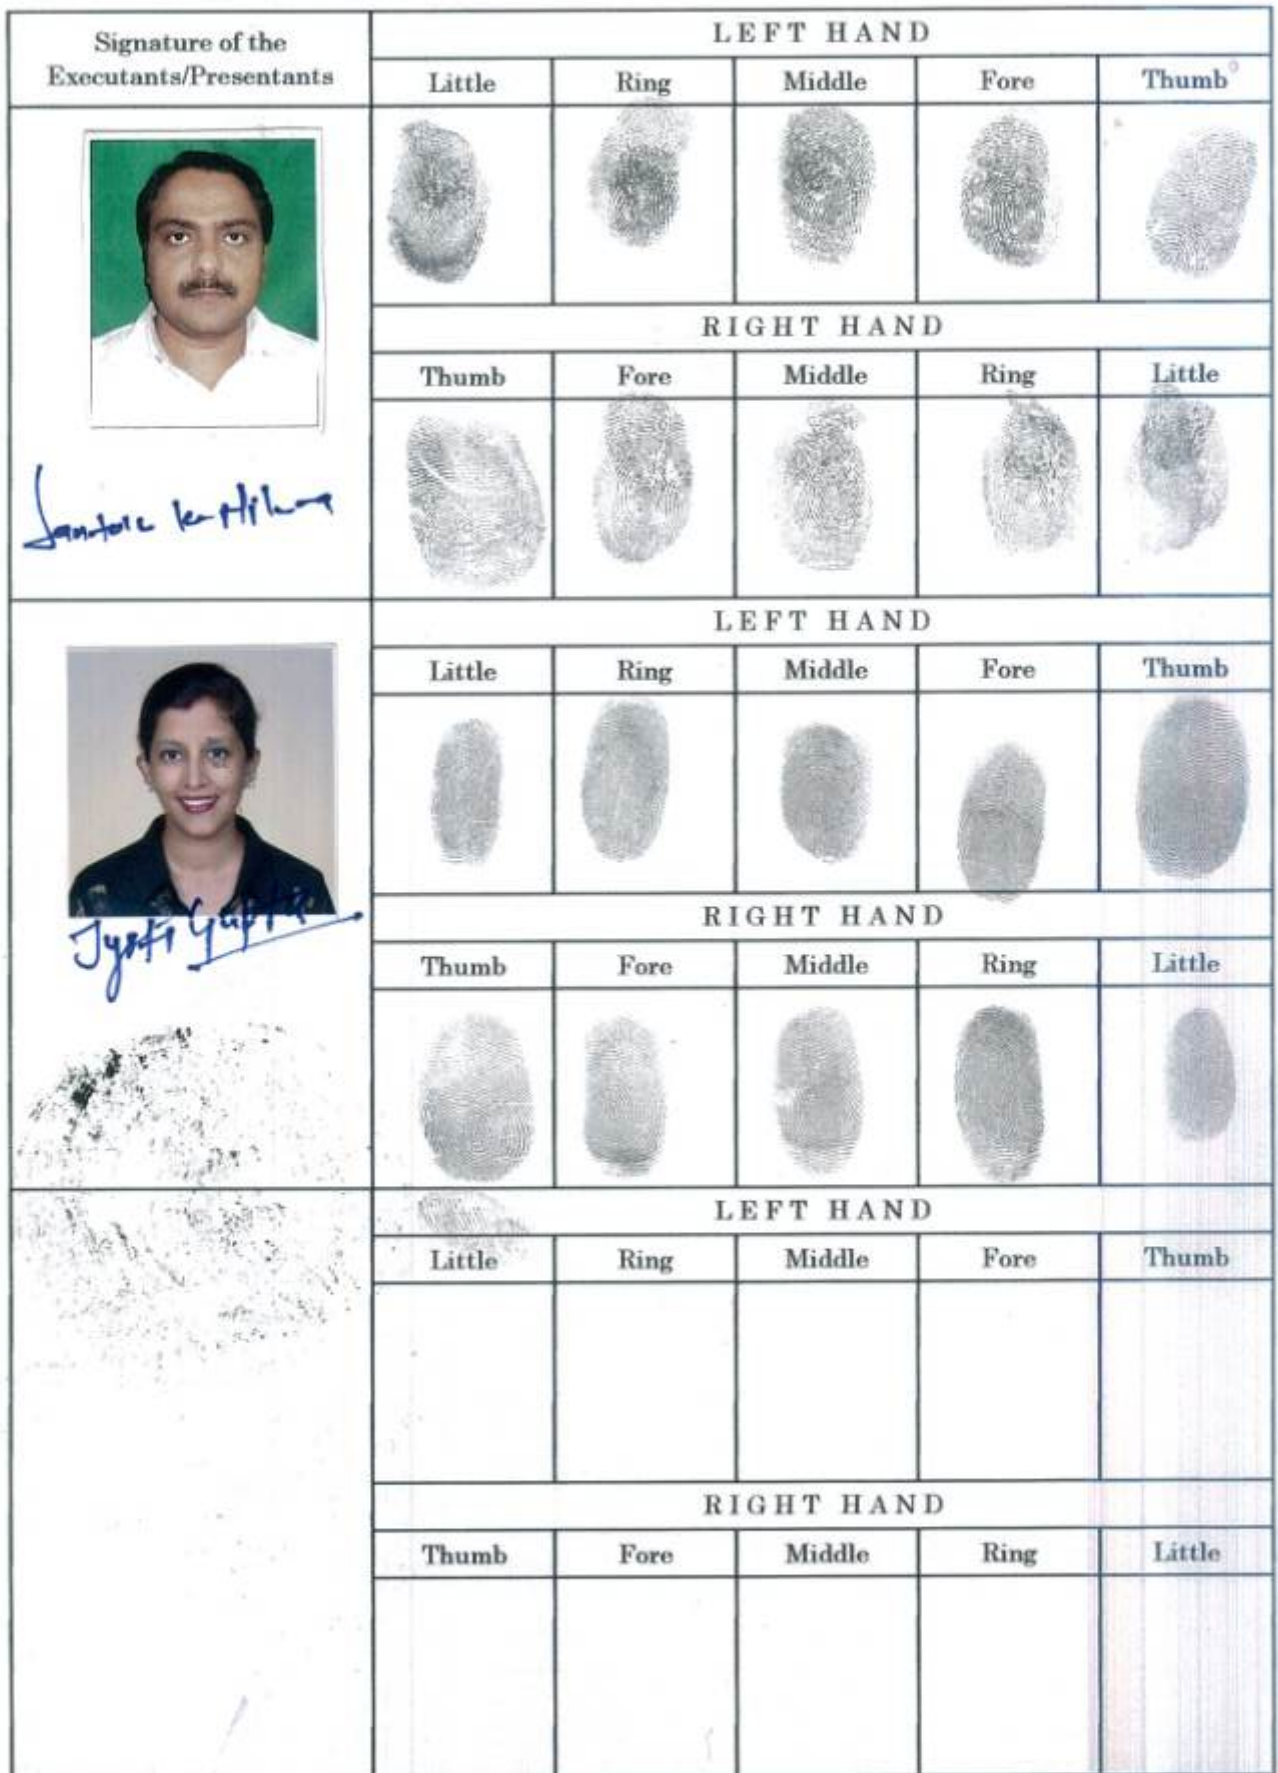 Signature of the
Executants/Presentants
LEFT HAND
Little Ring Middle Fore Thumb
RIGHT HAND
Thumb Fore Middle Ring Little
LEFT HAND
Little Ring Middle Fore Thumb
Jyoti Gupta
RIGHT HAND
Thumb Fore Middle Ring Little
LEFT HAND
Little Ring Middle Fore Thumb
RIGHT HAND
Thumb Fore Middle Ring Little